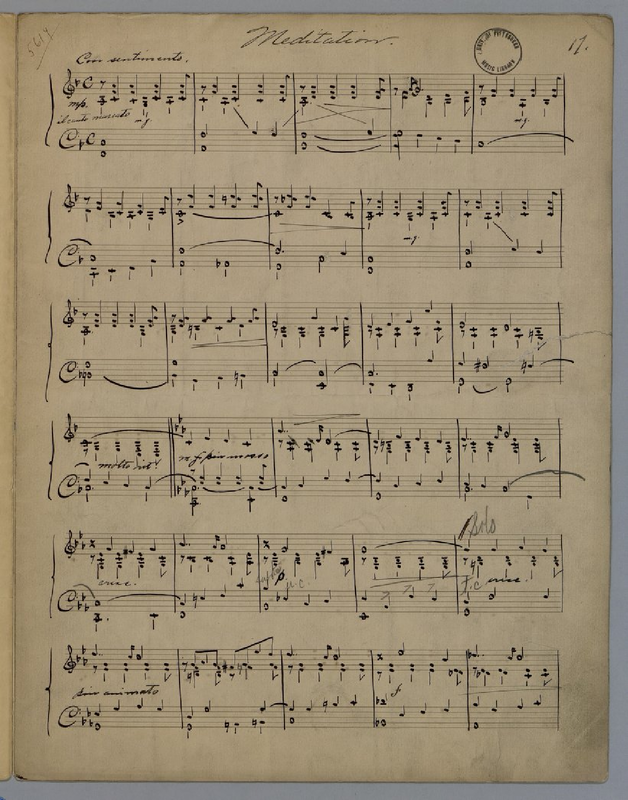 Meditation.
17.
UNIV. OF PITTSBURGH
MUSIC LIBRARY
Con sentimento.
mp.
il canto marcato
mf
mf
mf
molto rit!
mf piu mosso
Solo
cresc.
u.c.
t.c cresc.
piu animato
f